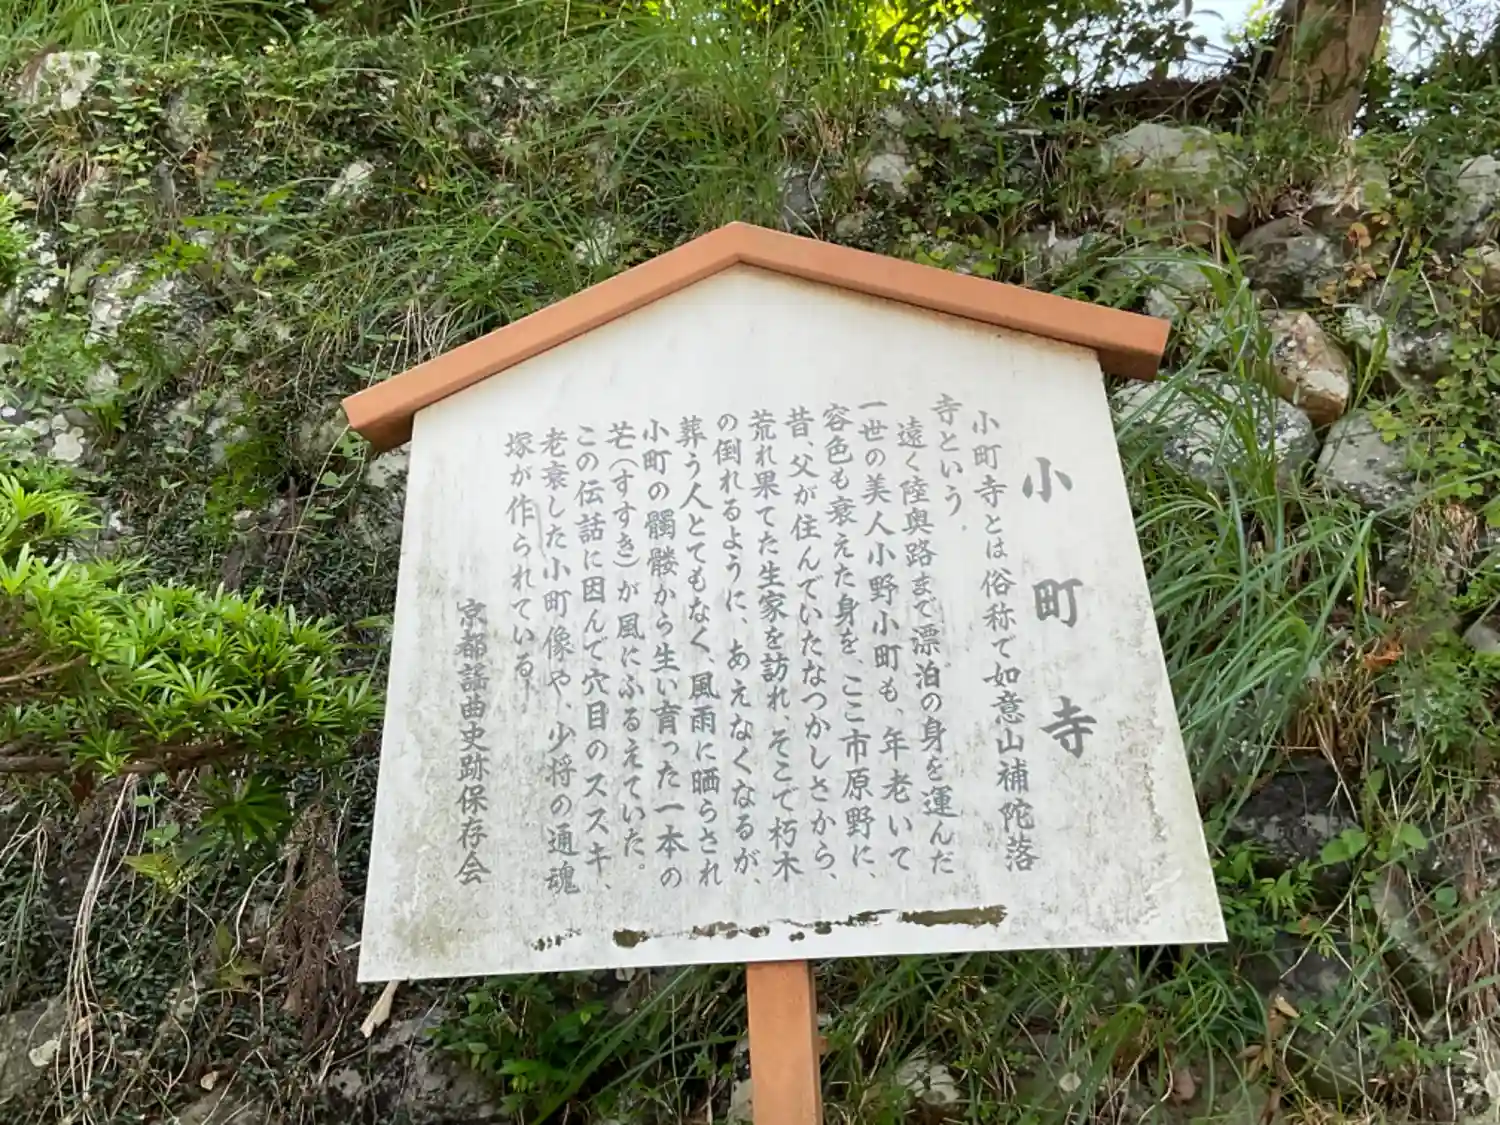 小町寺
小町寺とは俗称で如意山補陀落
寺という。
遠く陸奥路まで漂泊の身を運んだ
一世の美人小野小町も、年老いて
容色も衰えた身を、ここ市原野に、
昔、父が住んでいたなつかしさから、
荒れ果てた生家を訪れ、そこで朽木
の倒れるように、あえなくなるが、
葬う人とてもなく、風雨に晒らされ
小町の髑髏から生い育った一本の
芒（すすき）が風にふるえていた。
この伝話に因んで穴目のススキ、
老衰した小町像や、少将の通魂
塚が作られている。
京都謡曲史跡保存会